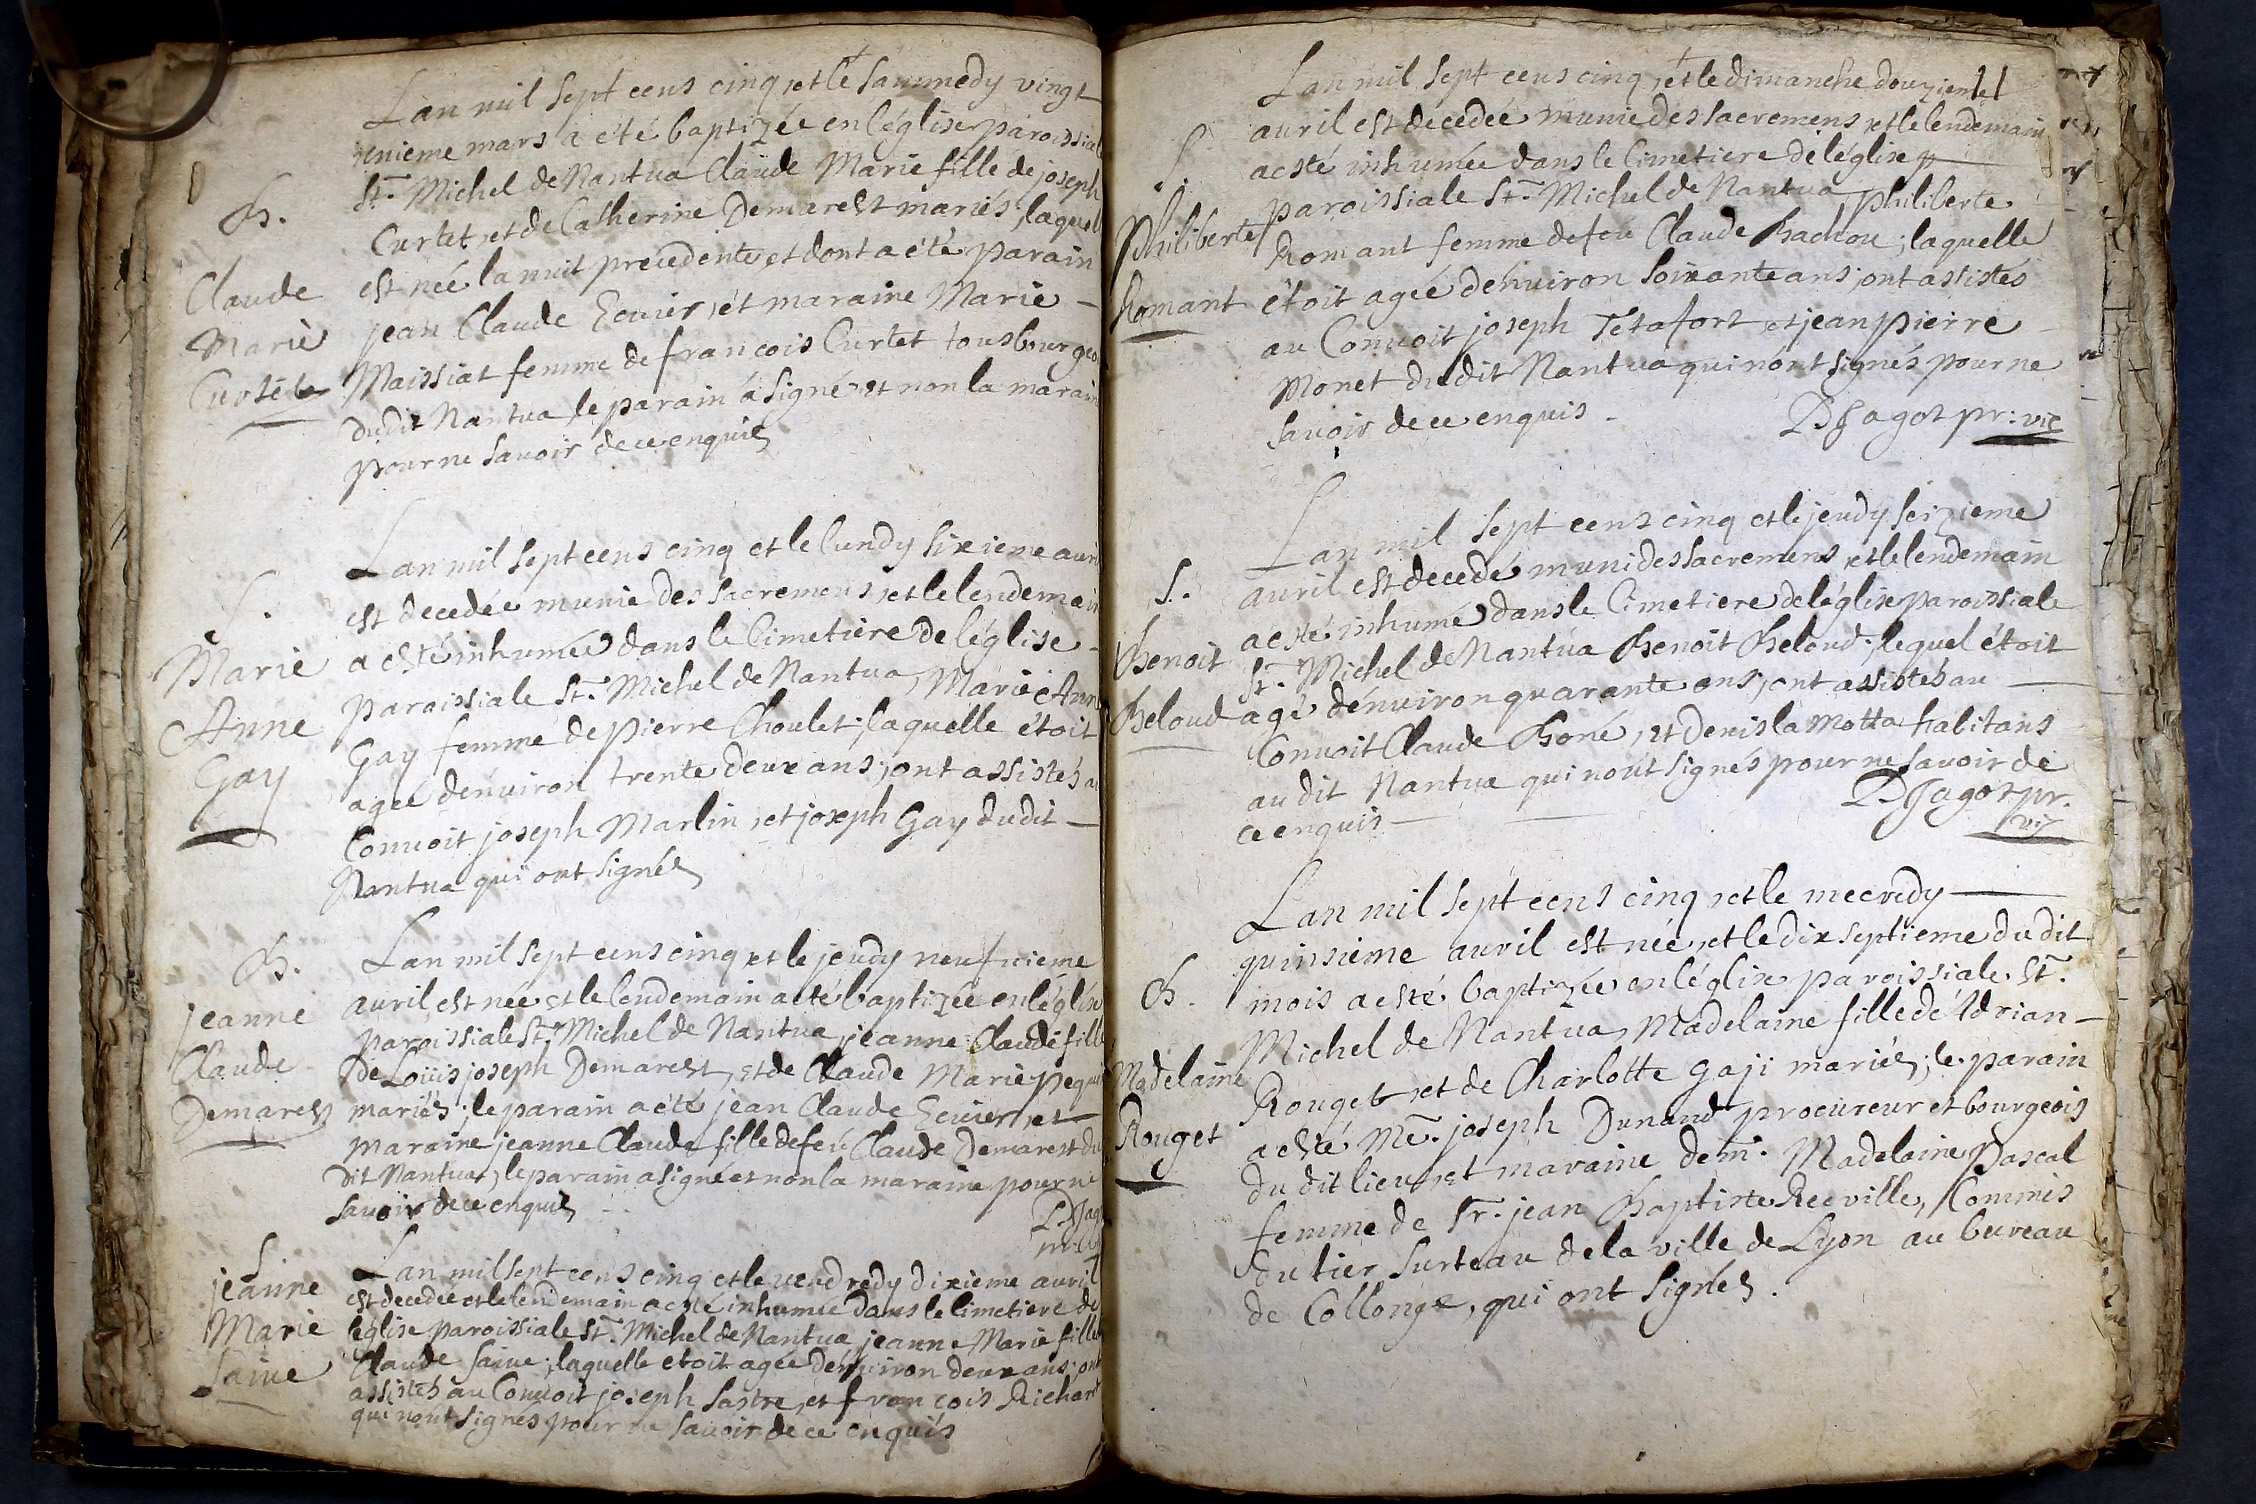 Lan mil sept cens cinq, et le sammedy vingt
unieme mars a été baptizée en l'église paroissial
St. Michel de Nantua Claude Marie fille de joseph
B.
Curtet, et de Catherine Demarest mariés, laquel
est née la nuit precedente et dont a été parain
Claude
jean Claude Ecuier, et maraine Marie -
Marie
Maissiat femme de francois Curtet tous bourgeo
Curtet
dudit Nantua, le parain á signé et non la marain
pour ne savoir de ce enquis
Lan mil sept cens cinq et le lundy sixieme avri
S.
est decedée munie des sacremens, et le lendemain
Marie
a esté inhumée dans le Cimetiere de l'église -
Anne
paroissiale St. Michel de Nantua, Marie Anne
Gay
Gay femme de pierre Choulet; laquelle étoit
agee dénuiron trente deux ans; ont assistés au
Conuoit joseph Marlin, et joseph Gay dudit -
Nantua qui ont signés
B.
Lan mil sept cens cinq et le jeudy neufuieme
jeanne
auril, est née et le lendemain a eté baptizée en léglise
Claude
paroissiale St. Michel de Nantua, jeanne Claude fille
Demarest
de Loüis joseph Demarest, et de Claude Marie pequ
mariés; le parain a été jean Claude Ecuier, et -
maraine jeanne Claude fille de feü Claude Demarest du
dit Nantua; le parain a signé et non la maraine pour ne
savoir de ce enquis
DJag
S.
Lan mil sept cens cinq et le vendredy dixieme auril
jeanne
est decedée et le lendemain a esté inhumée dans le Cimetiere de
Marie
l'église paroissiale St. Michel de Nantua jeanne Marie fille
Saiue
Claude Saiue; laquelle etoit agée dénuiron deux ans; ont
assistés au Conuoit joseph Sastre, et francois Richard
qui nont signés pour ne savoir de ce enquis
Lan mil sept cens cinq, et le dimanche douzieme
S.
auril est decedeé munie des sacremens, et le lendemain
a esté inhumée dans le Cimetiere de l'église
Philiberte
paroissiale St. Michel de Nantua, philiberte
Romant femme de feü Claude Bachou; laquelle
Romant
étoit agée dénuiron soixante ans; ont assistés
au Conuoit joseph Tetafort et jean pierre
Monet dudit Nantua qui n'ont signés pour ne
savoir de ce enquis -
DJagot pr: vic
Lan mil sept cens cinq et le jeudy seizieme
S.
auril est decedé muni des sacremens, et le lendemain
a esté inhumé dans le Cimetiere de l'église paroissiale
Benoit
St. Michel de Nantua Benoit Beloud; lequel étoit
Beloud
agé dénuiron quarante ans; ont assistés au -
Conuoit Claude Boné, et Denis la Motta habitans
au dit Nantua qui nont signés pour ne savoir de
ce enquis -
DJagot pr.
vic
Lan mil sept cens cinq, et le mecredy -
quinsieme auril est née, et le dix septieme du dit
B.
mois a esté baptizée en l'église paroissiale St.
Michel de Nantua, Madelaine fille dé Adrian -
Madelaine
Rouget, et de Charlotte Gaji mariés; le parain
Rouget
a esté Me. joseph Dunand procureur et bourgeois
du dit lieu, et maraine dem. Madelaine Pascal
femme de Sr. jean Baptiste Reeville, Commis
du tier surteau de la ville de Lyon au bureau
de Collonge, qui ont signés.